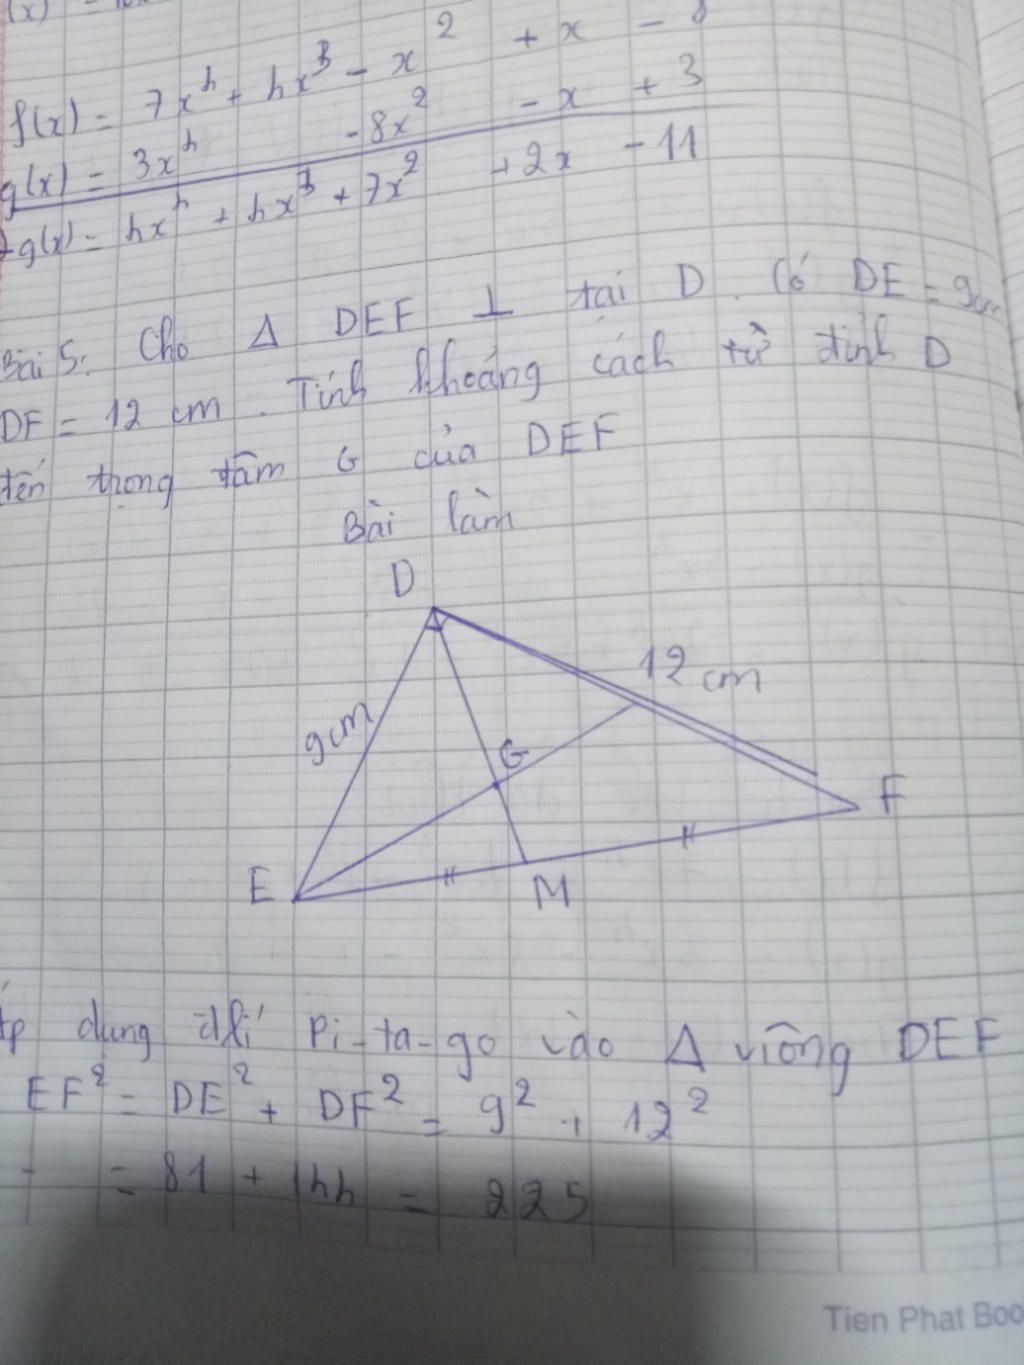 f(x) = 7x⁴ + 4x³ - x² + x - 8
g(x) = 3x⁴ - 8x² - x + 3
-g(x) = 4x⁴ + 4x³ + 7x² + 2x - 11
Bài 5: Cho Δ DEF ⊥ tại D. Có DE = 9cm
DF = 12 cm. Tính khoảng cách từ đỉnh D
đến trọng tâm G của DEF
Bài làm
D
12 cm
9cm
G
F
E
M
Áp dụng đlí Pi-ta-go vào Δ vuông DEF
EF² = DE² + DF² = 9² + 12²
= 81 + 144 = 225
Tien Phat Boo